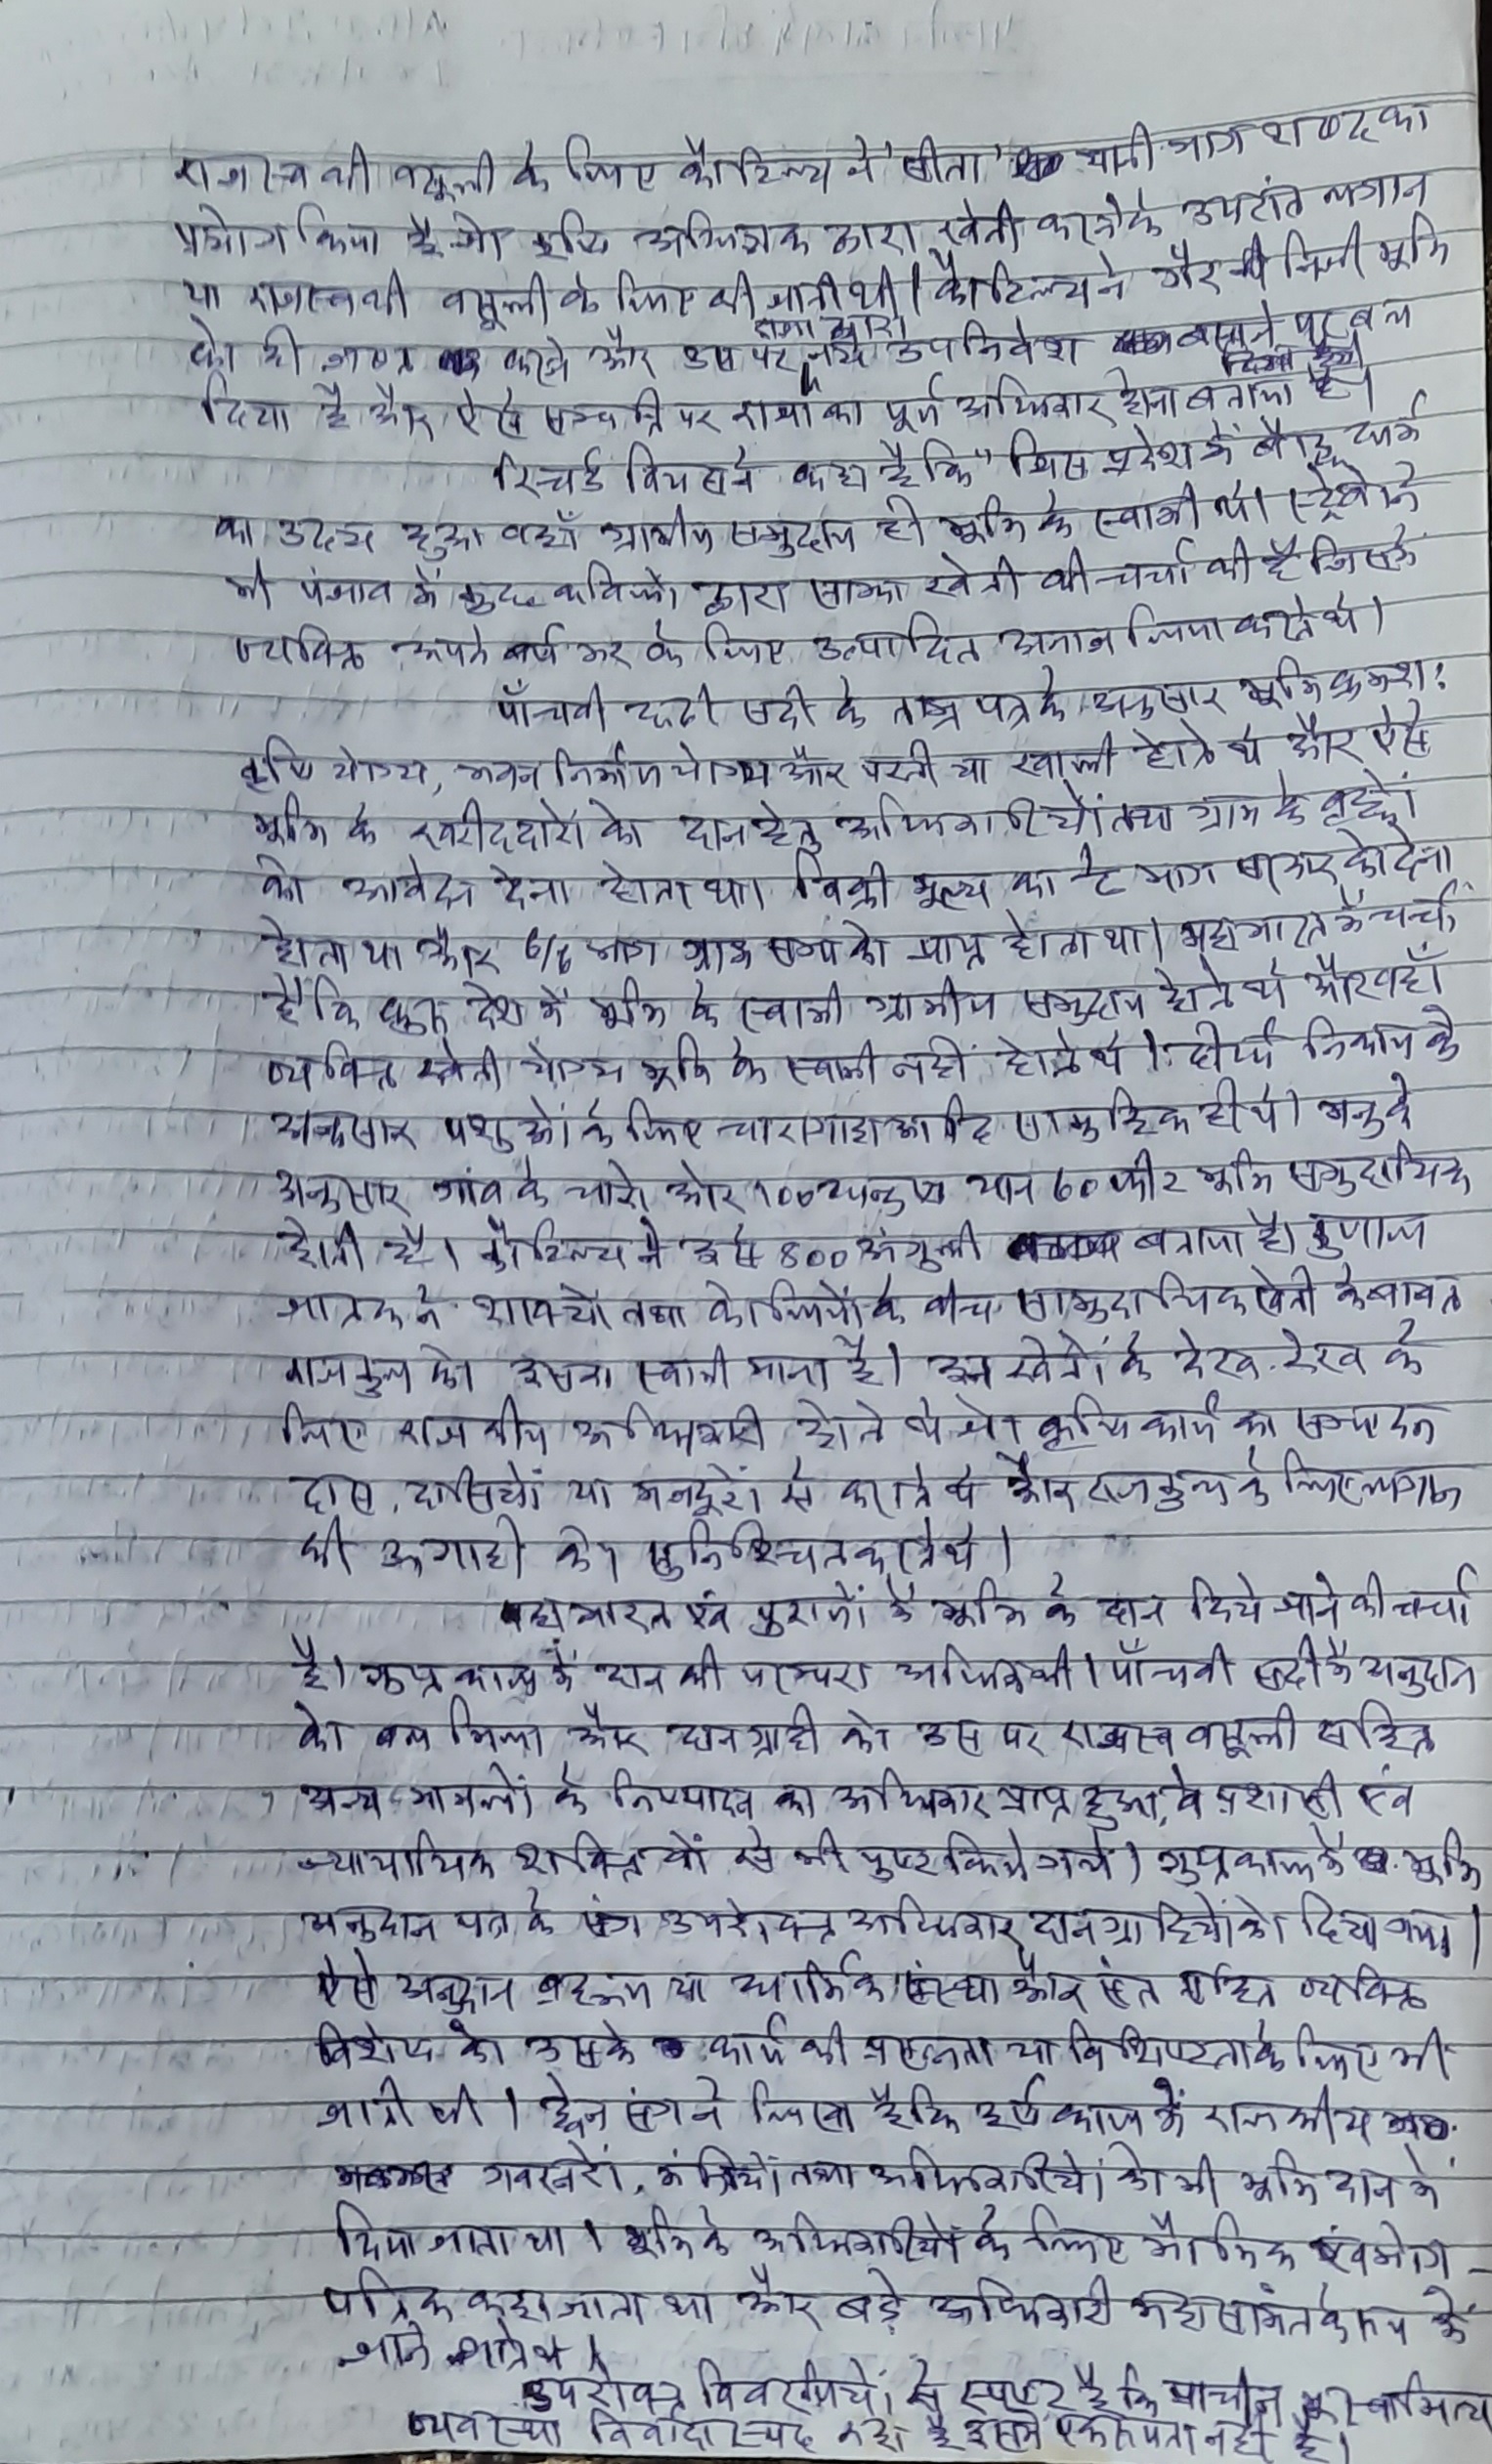 राजस्व की वसूली के लिए कौटिल्य ने 'सीता' यानी भाग शब्द का
प्रयोग किया है जो कृषि अधिक्षक द्वारा खेती करने के उपरांत लगान
या राजस्व की वसूली के लिए की जाती थी। कौटिल्य ने गैर निजी भूमि
को ही जप्त करने और उस पर राजा द्वारा नये उपनिवेश बसाने पर बल
दिया है और ऐसे सम्पत्ति पर राजा का पूर्ण अधिकार होना बताया है।
रिचर्ड विप्सन कहा है कि "जिस प्रदेश में बौद्ध धर्म
का उदय हुआ वहाँ ग्रामीण समुदाय ही भूमि के स्वामी थे। स्ट्रेबो ने
भी पंजाब में कुछ कबिलों द्वारा साझा खेती की चर्चा की है जिसमें
व्यक्ति अपने वर्ष भर के लिए उत्पादित अनाज लिया करते थे।
पाँचवी छठी सदी के ताम्र पत्र के अनुसार भूमि क्रमश:
कृषि योग्य, भवन निर्माण योग्य और परती या खाली होते थे और ऐसे
भूमि के खरीददारों को दान हेतु अधिकारियों तथा ग्राम के वृद्धों
को आवेदन देना होता था। विक्री मूल्य का भाग सरकार को देना
होता था और भाग ग्राम सभा को प्राप्त होता था। महाभारत में चर्चा
है कि कुरु देश में भूमि के स्वामी ग्रामीण समुदाय होते थे और वहाँ
व्यक्ति खेती योग्य भूमि के स्वामी नहीं होते थे। दीर्घ निकाय के
अनुसार पशुओं के लिए चारागाह आदि सामुहिक ही थे। मनु के
अनुसार गांव के चारो ओर 100 धनुष यान 60 फीट भूमि समुदायिक
होती है। कौटिल्य ने इसे 800 अंगुली बताया है। कुणाल
जातक ने शाक्यों तथा कोलियों के बीच सामुदायिक खेती के बावत
राजकुल को इसका स्वामी माना है। इन खेतों के देख-रेख के
लिए राजकीय अधिकारी होते थे जो कृषि कार्य का सम्पादन
दास, दासियों या मजदूरों से कराते थे और राजकुल के लिए लगान
की उगाही को सुनिश्चित करते थे।
महाभारत एवं पुराणों में भूमि के दान दिये जाने की चर्चा
है। गुप्त काल में दान की परम्परा अधिक थी। पाँचवी सदी में अनुदान
को बल मिला और दानग्राही को उस पर राजस्व वसूली सहित
अन्य मामलों के निष्पादन का अधिकार प्राप्त हुआ, वे प्रशासी एवं
न्यायायिक शक्तियों से भी पुष्ट किये गये। गुप्त काल में भूमि
अनुदान पत्र के संग उपरोक्त अधिकार दानग्राहियों को दिया गया।
ऐसे अनुदान ब्राह्मण या धार्मिक संस्था और संत सहित व्यक्ति
विशेष को उसके कार्य की प्रसन्नता या विशिष्टता के लिए भी
जाती थी। ह्वेन संग ने लिखा है कि हर्ष काल में राजकीय
गवरनरों, मंत्रियों तथा अधिकारियों को भी भूमि दान में
दिया जाता था। भूमि के अधिकारियों के लिए भौमिक एवं भोग-
पत्रिक कहा जाता था और बड़े अधिकारी महासामंत के रूप में
जाने जाते थे।
उपरोक्त विवरणियों से स्पष्ट है कि प्राचीन भू स्वामित्व
व्यवस्था विवादास्पद रही है इसमें एकरूपता नहीं है।